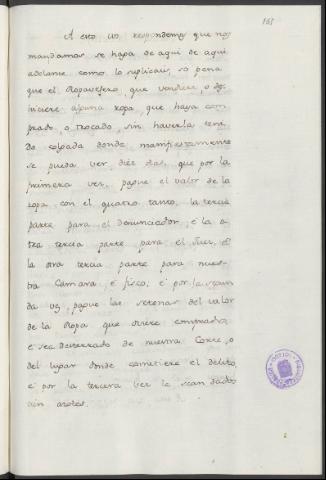 161
A esto vos respondemos que nos
mandamos se haga de aqui de aqui
adelante como lo suplicais, so pena
que el Ropavejero, que vendiere o des
hiciere alguna ropa, que haya com
prado, o trocado, sin haverla teni
do colgada donde manifiestamente
se pueda ver, diez dias, que por la
primera vez, pague el valor de la
ropa con el quatro tanto, la tercia
parte para el denunciador, é la o
tra tercia parte para el Juez, é
la otra tercia parte para nues
tra Camara, é fisco, é por la segun
da vez, pague las setenas del valor
de la Ropa que oviere comprado,
e sea desterrado de nuestra Corte, o
del lugar donde cometiere el delito,
é por la tercera vez le sean dados
cien azotes.